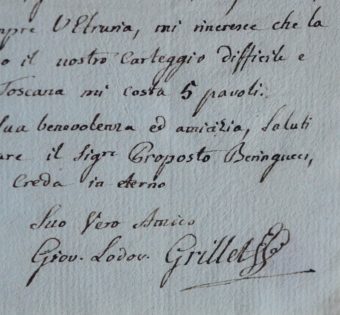 mpre l'Etruria, mi rincresce che la
o il nostro Carteggio difficile e
Toscana mi costa 5 pavoli.
sua benevolenza ed amicizia, saluti
are il Sigre Proposto Beringucci,
Creda in eterno
Suo Vero Amico
Giov. Lodov. Grillet